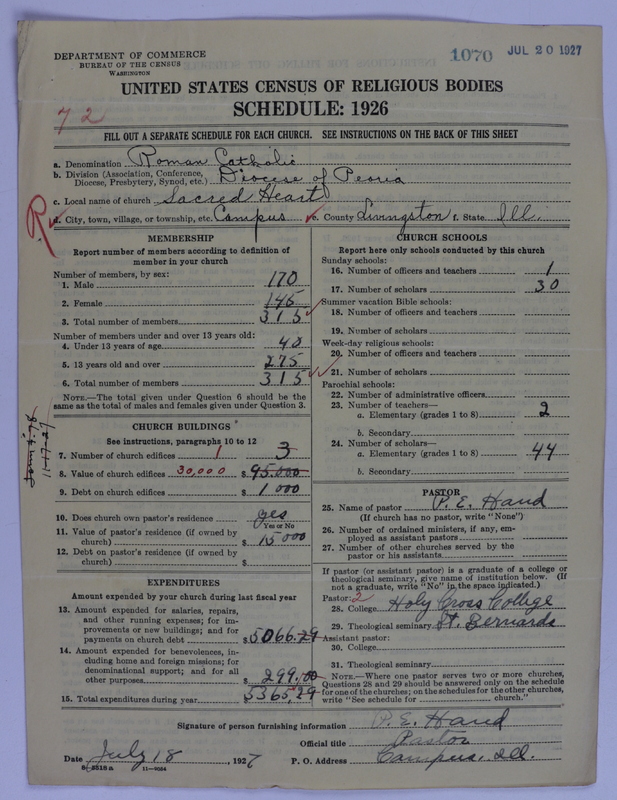 DEPARTMENT OF COMMERCE
BUREAU OF THE CENSUS
WASHINGTON
1070 JUL 20 1927
UNITED STATES CENSUS OF RELIGIOUS BODIES
SCHEDULE: 1926
72
FILL OUT A SEPARATE SCHEDULE FOR EACH CHURCH. SEE INSTRUCTIONS ON THE BACK OF THIS SHEET
a. Denomination Roman Catholic
b. Division (Association, Conference, Diocese, Presbytery, Synod, etc.) Diocese of Peoria
c. Local name of church Sacred Heart
R
d. City, town, village, or township, etc. Campus e. County Livingston f. State Ill.
MEMBERSHIP
Report number of members according to definition of
member in your church
Number of members, by sex:
1. Male 170
2. Female 145
3. Total number of members 315
Number of members under and over 13 years old:
4. Under 13 years of age 40
5. 13 years old and over 275
6. Total number of members 315
NOTE.—The total given under Question 6 should be the
same as the total of males and females given under Question 3.
CHURCH BUILDINGS
See instructions, paragraphs 10 to 12
7. Number of church edifices 1 3
8. Value of church edifices 30,000 $ 95.000
9. Debt on church edifices $ 1 000
10. Does church own pastor's residence yes
Yes or No
11. Value of pastor's residence (if owned by
church) $ 15 000
12. Debt on pastor's residence (if owned by
church) $
11-17-27
EXPENDITURES
Amount expended by your church during last fiscal year
13. Amount expended for salaries, repairs,
and other running expenses; for im-
provements or new buildings; and for
payments on church debt $ 5066.29
14. Amount expended for benevolences, in-
cluding home and foreign missions; for
denominational support; and for all
other purposes $ 299.00
15. Total expenditures during year $ 5365.29
CHURCH SCHOOLS
Report here only schools conducted by this church
Sunday schools:
16. Number of officers and teachers 1
17. Number of scholars 30
Summer vacation Bible schools:
18. Number of officers and teachers
19. Number of scholars
Week-day religious schools:
20. Number of officers and teachers
21. Number of scholars
Parochial schools:
22. Number of administrative officers
23. Number of teachers—
a. Elementary (grades 1 to 8) 2
b. Secondary
24. Number of scholars—
a. Elementary (grades 1 to 8) 44
b. Secondary
PASTOR
25. Name of pastor P. E. Hand
(If church has no pastor, write "None")
26. Number of ordained ministers, if any, em-
ployed as assistant pastors
27. Number of other churches served by the
pastor or his assistants
If pastor (or assistant pastor) is a graduate of a college or
theological seminary, give name of institution below. (If
not a graduate, write "No" in the space indicated.)
Pastor: 2
28. College Holy Cross College
29. Theological seminary St. Bernards
Assistant pastor:
30. College
31. Theological seminary
NOTE.—Where one pastor serves two or more churches,
Questions 28 and 29 should be answered only on the schedule
for one of the churches; on the schedules for the other churches,
write "See schedule for church."
Signature of person furnishing information P. E. Hand
Official title Pastor
Date July 18, 1927 P. O. Address Campus, Ill.
8-5518a 11-9054